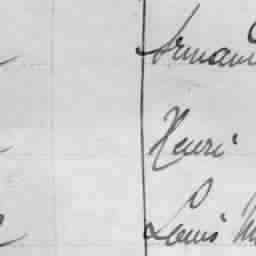 Armand
Henri
Louis